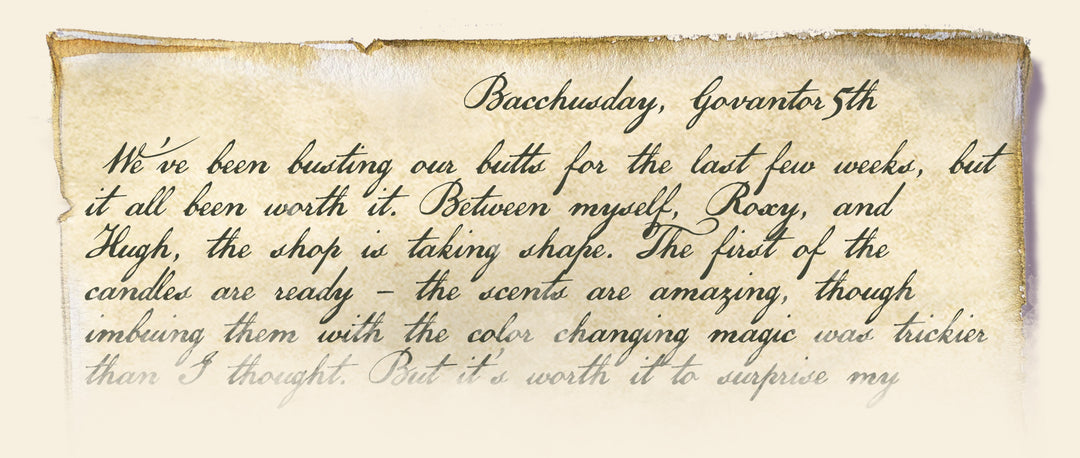 Bacchusday, Govantor 5th
We've been busting our butts for the last few weeks, but
it all been worth it. Between myself, Roxy, and
Hugh, the shop is taking shape. The first of the
candles are ready – the scents are amazing, though
imbuing them with the color changing magic was trickier
than I thought. But it's worth it to surprise my